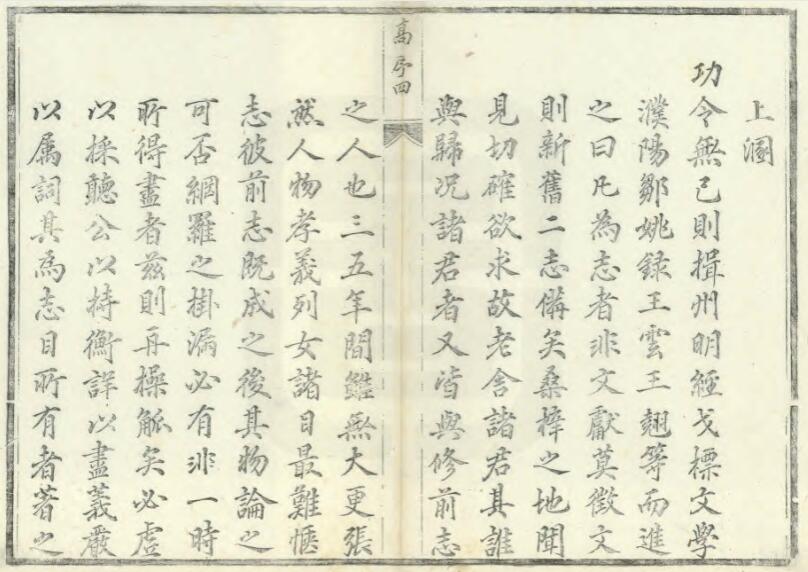 上溷
功令無已則揖州明經戈標文學
濮陽鄒姚録王雲王翹等而進
之曰凡為志者非文獻莫徴文
則新舊二志備矣桑梓之地聞
見切確欲求故老舍諸君其誰
與歸况諸君者又皆與修前志
高序四
之人也三五年間鑑無大更張
然人物孝義列女諸目最難愜
志彼前志既成之後其物論之
可否網羅之掛漏必有非一時
所得盡者兹則再操觚矣必虛
以採聽公以持衡詳以盡義嚴
以属詞其為志目所有者著之